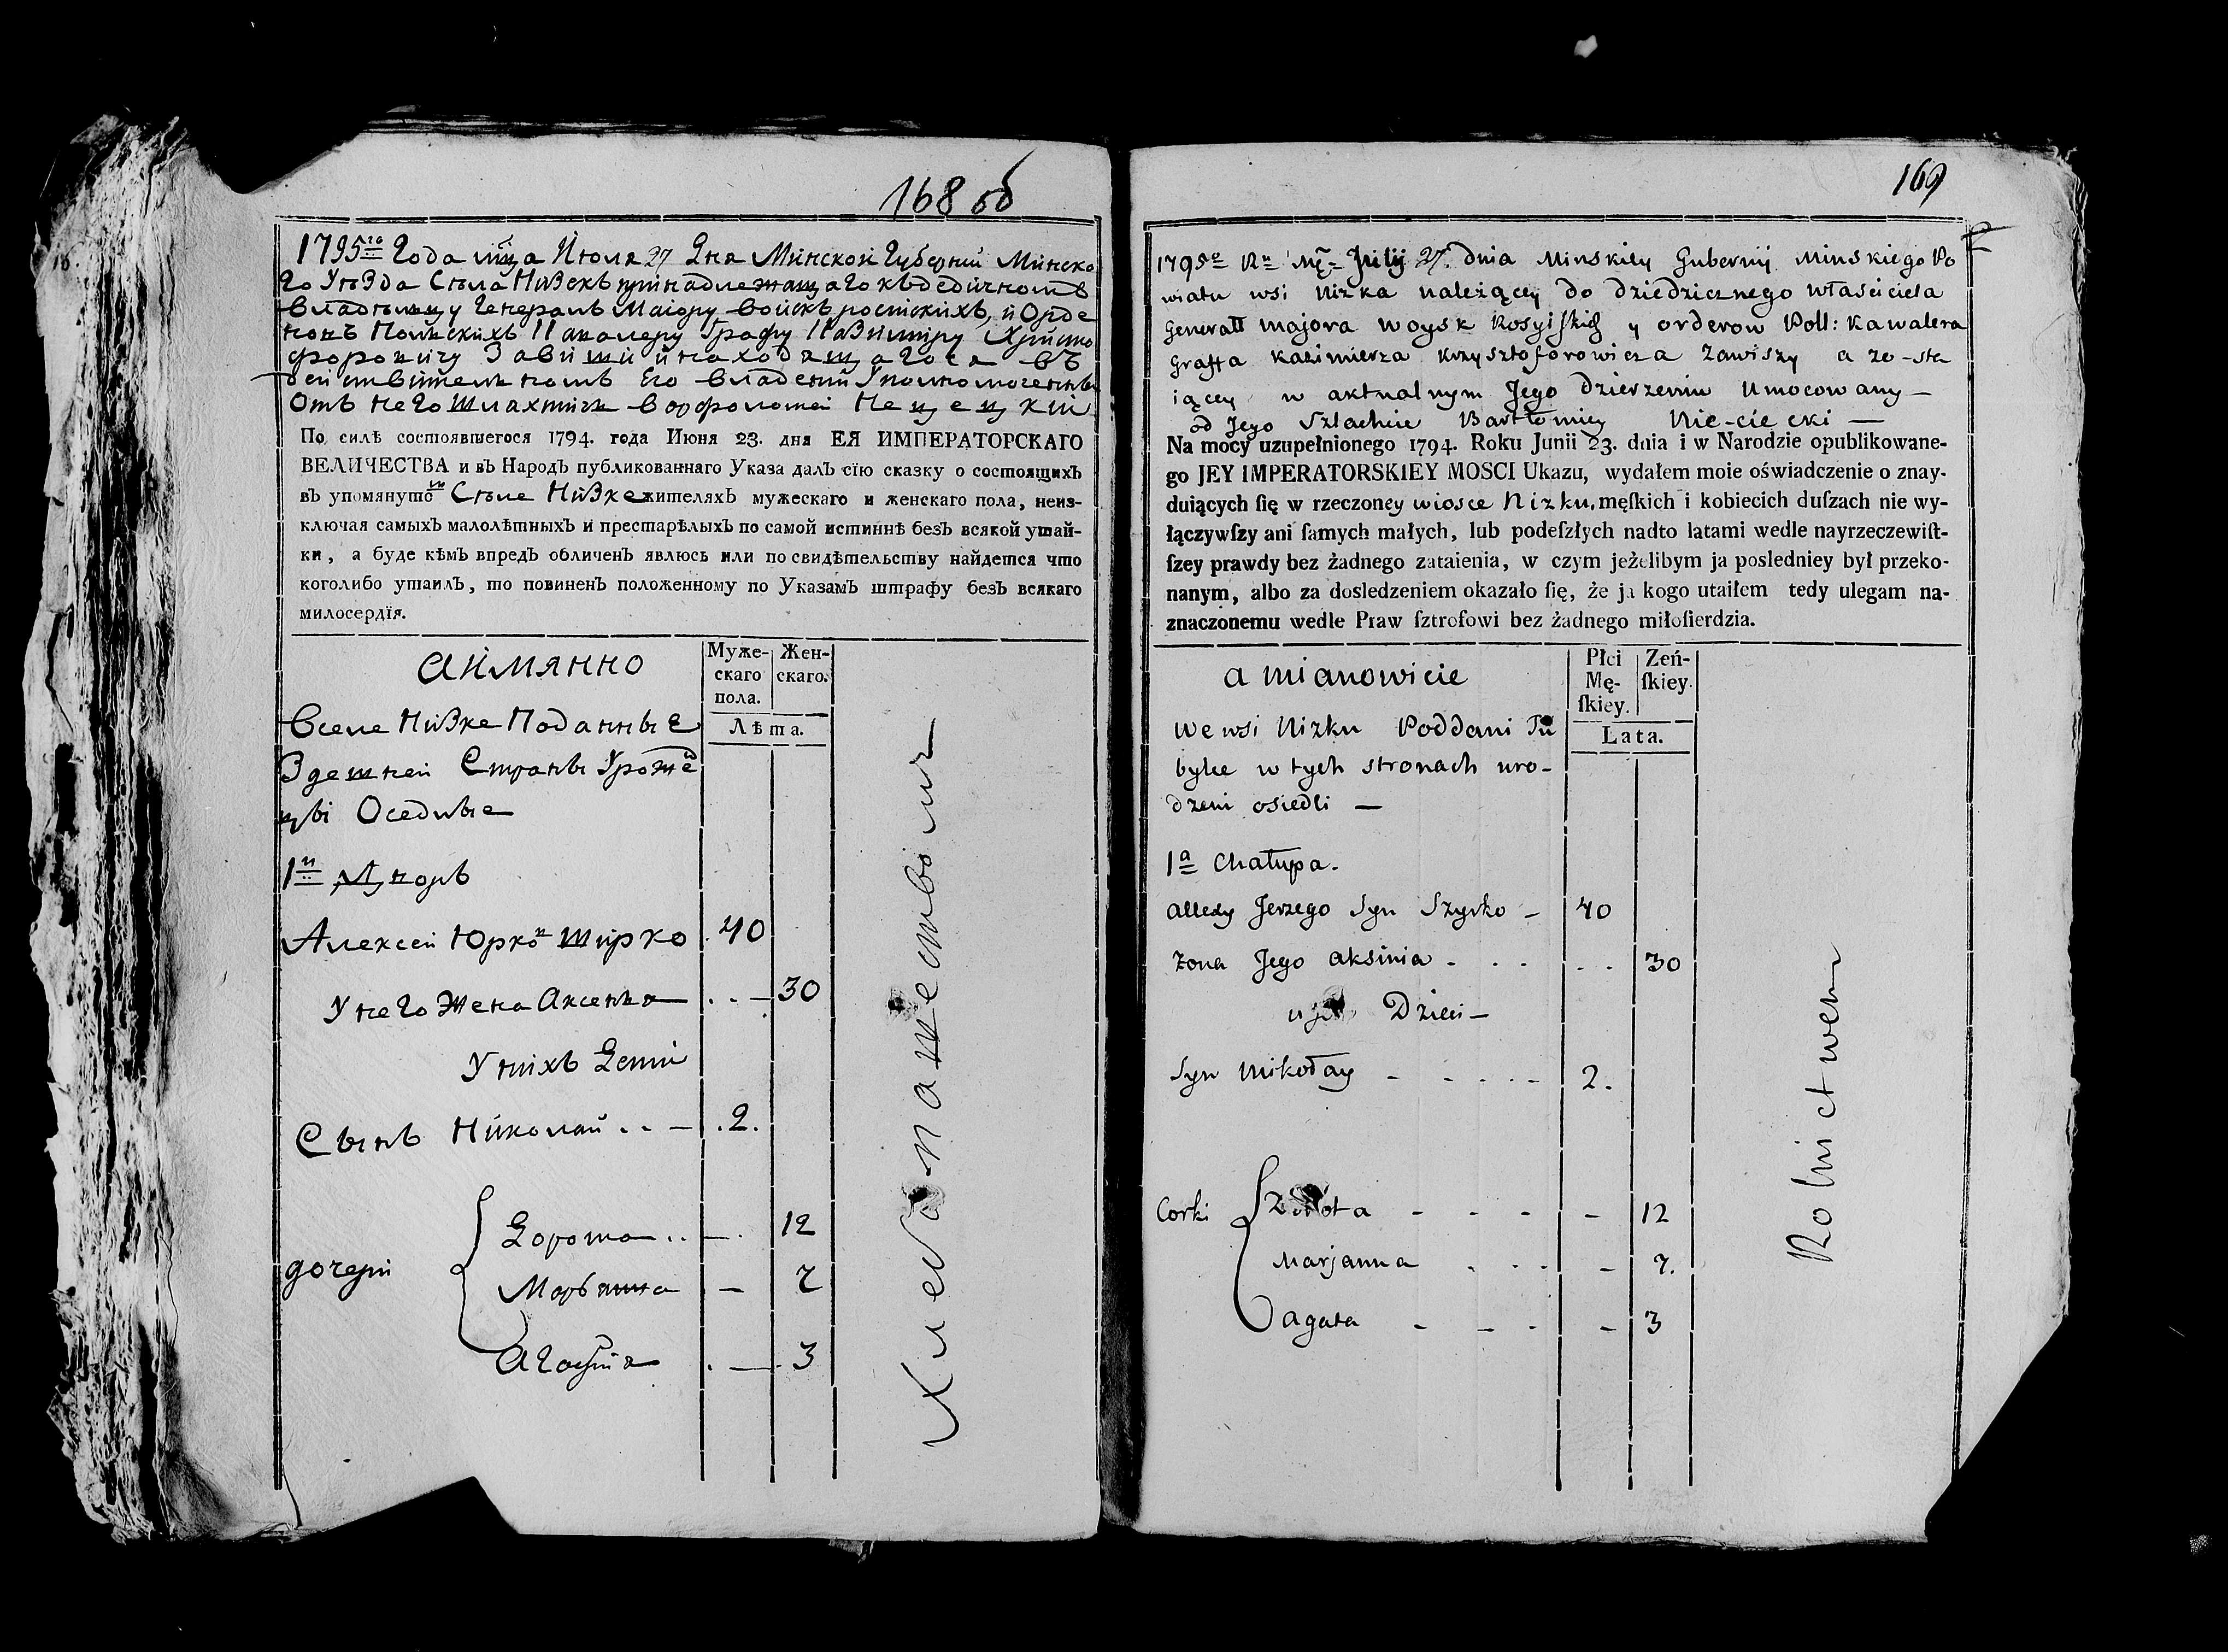 168 об
1795го Года мца Июля 27 Дня Минской Губерний Минско
го Уезда Села Низекъ принадлежащаго къ дедичномъ
владельцу Генералъ Маіору войскъ росийскихъ, и Орде
новъ Польскихъ Кавалеру Графу Казимиру Христо
форовичу Завиши и находящагося въ
действительномъ Его владений Уполномоченны
Отъ него Шляхтичъ Ворфоломей Нецецкий
По силѣ состоявшегося 1794. года Июня 23. дня ЕЯ ИМПЕРАТОРСКАГО
ВЕЛИЧЕСТВА и въ Народъ публикованнаго Указа далъ сїю сказку о состоящихъ
въ упомянутомъ Селе Низке жителяхъ мужескаго и женскаго пола, неиз-
ключая самыхъ малолѣтныхъ и престарѣлыхъ по самой истиннѣ безъ всякой утай-
ки, а буде кѣмъ впредъ обличенъ явлюсь или по свидѣтельству найдется что
коголибо утаилъ, то повиненъ положенному по Указамъ штрафу безъ всякаго
милосердїя.
аймянно
Муже-
скаго
пола.
Жен-
скаго.
Лѣта.
Вселе Низке Поданные
Здешней Страны Уроже
цы Оседлые
1й
Алексей Юрков Ширко 40
У него Жена Аксенья . . — 30
У нихъ Дети
Сынъ Николай . . — .2.
дочери
Дорота . . — . 12
Марьянна — 7
Агафия . — . 3
Хлебопашествомъ
169
1795o Ru Mę: Julij 27. dnia Minskiey Gubernij Minskiego Po
wiatu wsi Nizka należącey do dziedzicznego właściciela
Generall majora woysk Rosyiskich y orderow Poll: Kawalera
Graffa Kazimierza Krzysztoforowicza Zawiszy a zo-sta
iącey w aktualnym Jego dzierzeniu Umocowany —
od Jego Szlachcic Bartłomiey Nie-cie cki —
Na mocy uzupełnionego 1794. Roku Junii 23. dnia i w Narodzie opublikowane-
go JEY IMPERATORSKIEY MOSCI Ukazu, wydałem moie oświadczenie o znay-
duiących ſię w rzeczoney wiosce Nizku, męſkich i kobiecich duſzach nie wy-
łączywſzy ani ſamych małych, lub podeſzłych nadto latami wedle nayrzeczewiſt-
ſzey prawdy bez żadnego zataienia, w czym jeżelibym ja posledniey był przeko-
nanym, albo za dosledzeniem okazało ſię, że ja kogo utaiłem tedy ulegam na-
znaczonemu wedle Praw ſztrofowi bez żadnego miłoſierdzia.
a mianowicie
Płci
Mę-
ſkiey.
Zeń-
ſkiey.
Lata.
We wsi Nizku Poddani Tu
bylce w tych stronach uro-
dzeni osiedli —
1a Chałupa.
Allexy Jerzego Syn Szyrko — 40
Zona Jego Aksinia - . . . . 30
Dzieci —
Syn Mikołay - - - . - 2.
Corki
- - - - 12
Marjanna . . . - 7.
Agata - - - - 3
Rolnictwem